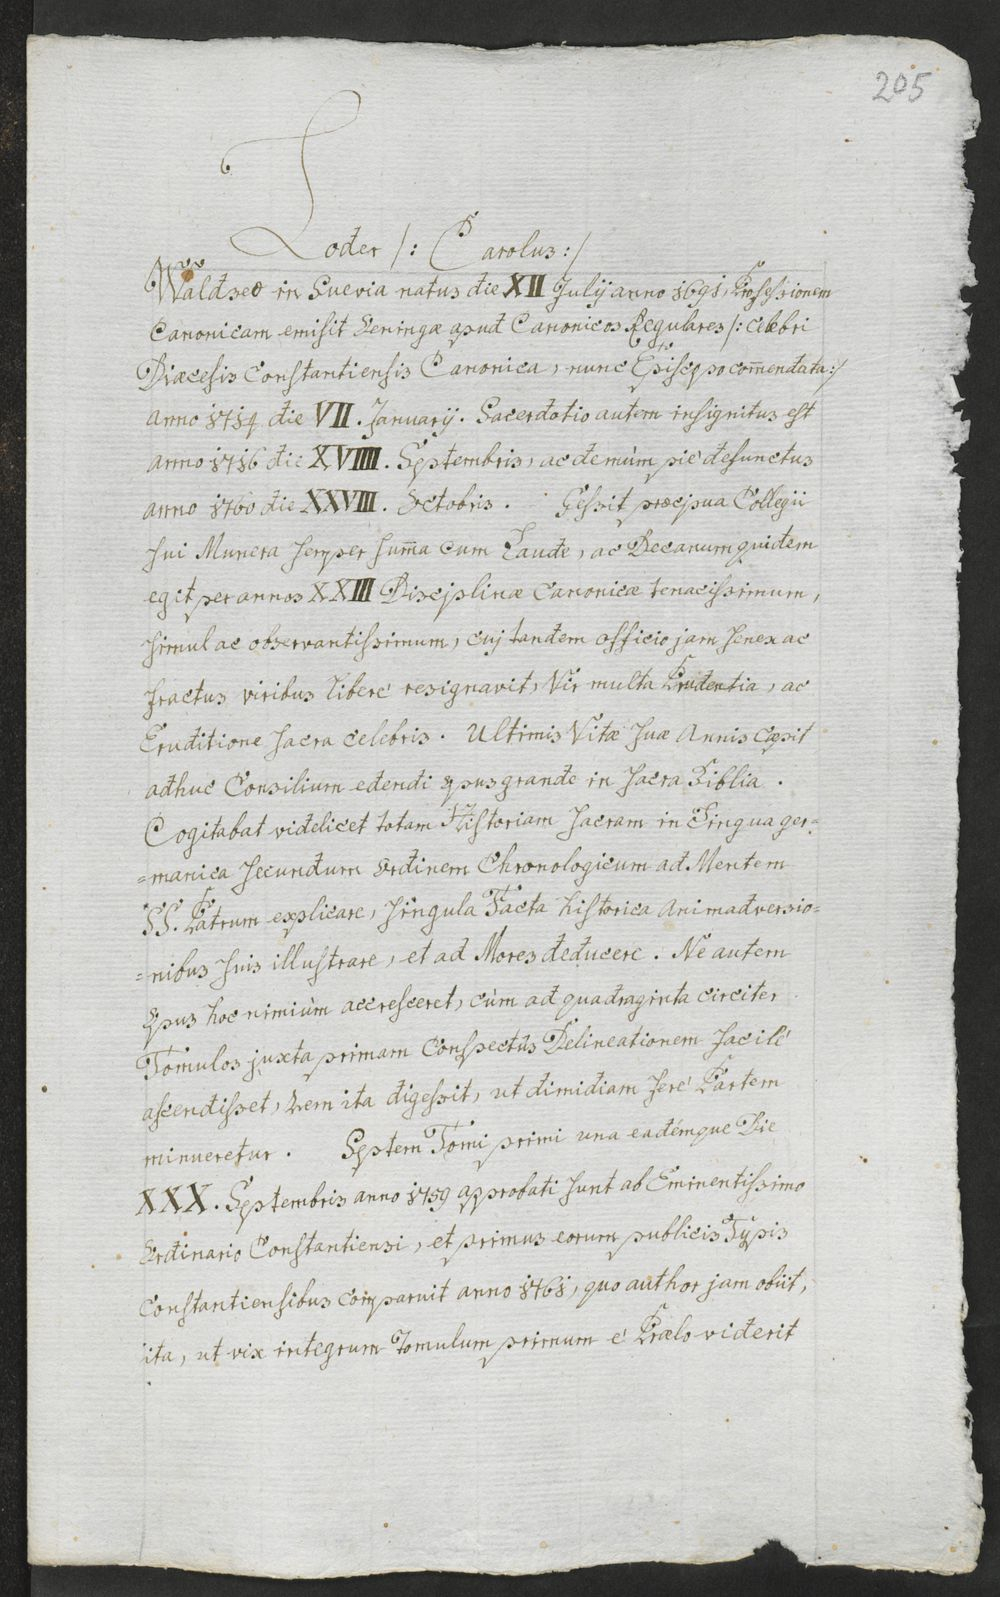 205
Loder /: Carolus :/
Waldseo in Suevia natus die XII Julij anno 1691, Professionem
Canonicam emisit Oeningæ apud Canonicos Regulares /: celebri
Diæcesis Constantiensis Canonica, nunc Episcopo com̄endata :/
anno 1714 die VII. Januarij. Sacerdotio autem insignitus est
anno 1716 die XVIIII. Septembris, ac demùm piè defunctus
anno 1760 die XXVIII. Octobris. Gessit præcipua Collegii
sui Munera semper sum̄a cum Laude, ac Decanum quidem
egit per annos XXIII Disciplinæ Canonicæ tenacissimum,
simul ac observantissimum, cuj tandem officio jam senex ac
fractus viribus liberè resignavit, Vir multa Prudentia, ac
Eruditione sacra celebris. Ultimis Vitæ suæ Annis cæpit
adhuc Consilium edendi opus grande in sacra Biblia.
Cogitabat videlicet totam Historiam sacram in Lingua ger=
=manica secundum Ordinem Chronologicum ad Mentem
SS. Patrum explicare, singula Facta historica animadversio=
=nibus suis illustrare, et ad Mores deducere. Ne autem
opus hoc nimiùm accresceret, cùm ad quadraginta circiter
Tomulos juxta primam Conspectûs Delineationem facilè
ascendisset, rem ita digessit, ut dimidiam ferè Partem
minueretur. Septem Tomi primi una eadémque Die
XXX. Septembris anno 1759 approbati sunt ab Eminentissimo
Ordinario Constantiensi, et primus eorum publicis Typis
Constantiensibus comparuit anno 1761, quo author jam obiit,
ita, ut vix integrum Tomulum primum è Prælo viderit